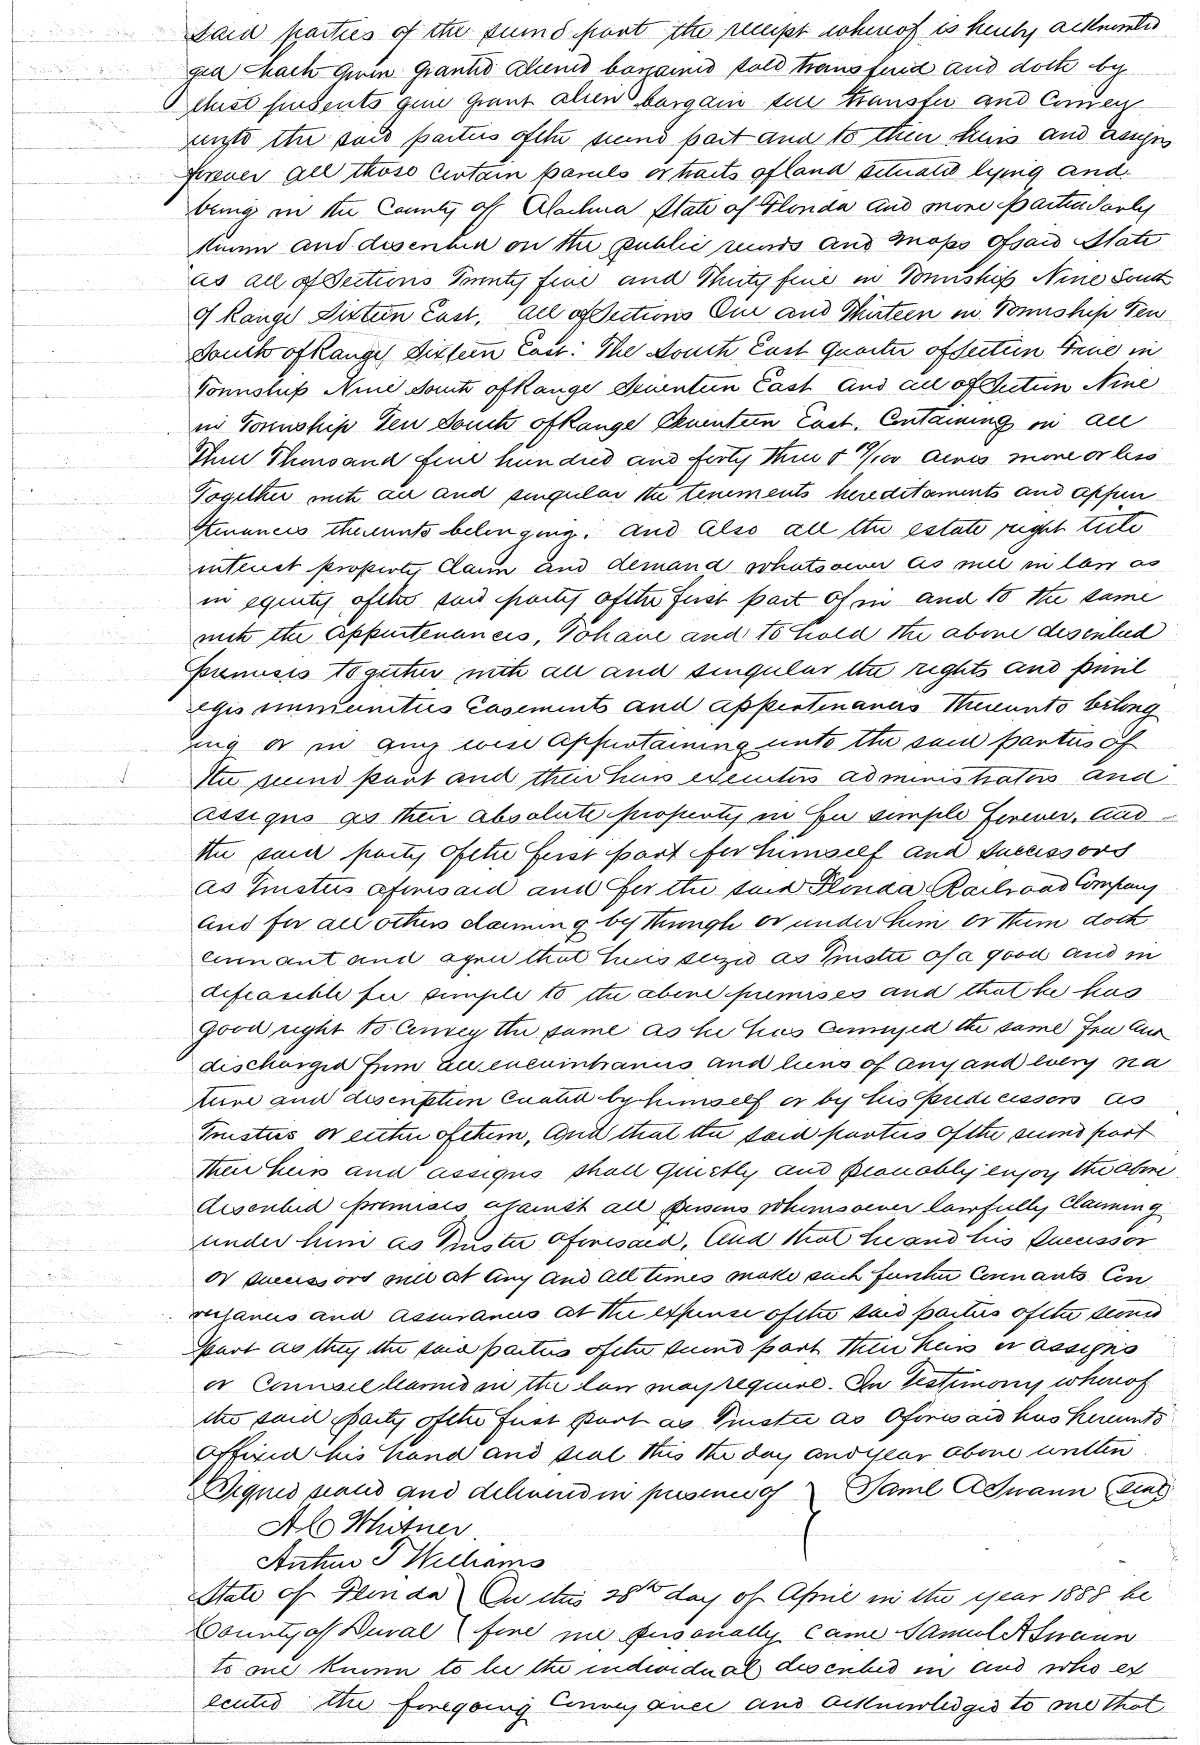 said parties of the second part the receipt whereof is hereby acknowled
ged hath given granted aliened bargained sold transferred and doth by
these presents give grant alien bargain sell transfer and convey
unto the said parties of the second part and to their heirs and assigns
forever all those certain parcels or tracts of land situated lying and
being in the County of Alachua State of Florida and more particularly
known and described on the public records and maps of said State
as all of Sections Twenty five and Thirty five in Township Nine South
of Range Sixteen East. all of Sections One and Thirteen in Township Ten
South of Range Sixteen East: The South East Quarter of Section Five in
Township Nine South of Range Seventeen East and all of Section Nine
in Township Ten South of Range Seventeen East. Containing in all
Three Thousand five hundred and forty three & /100 acres more or less
Together with all and singular the tenements hereditaments and appur
tenances thereunto belonging. and also all the estate right title
interest property claim and demand whatsoever as well in law as
in equity of the said party of the first part of in and to the same
with the appurtenances, To have and to hold the above described
premises together with all and singular the rights and privil
eges immunities easements and appurtenances thereunto belong
ing or in any wise appertaining unto the said parties of
the second part and their heirs executors administrators and
assigns as their absolute property in fee simple forever. And
the said party of the first part for himself and successors
as Trustees aforesaid and for the said Florida Railroad Company
and for all others claiming by through or under him or them doth
covenant and agree that he is seized as Trustee of a good and in
defeasible fee simple to the above premises and that he has
good right to convey the same as he has conveyed the same free and
discharged from all encumbrances and liens of any and every na
ture and description created by himself or by his predecessors as
Trustees or either of them, And that the said parties of the second part
their heirs and assigns shall quietly and peaceably enjoy the above
described premises against all persons whomsoever lawfully claiming
under him as Trustee aforesaid, And that he and his successor
or successors will at any and all times make such further covenants con
veyances and assurances at the expense of the said parties of the second
part as they the said parties of the second part their heirs or assigns
or counsel learned in the law may require. In Testimony whereof
the said party of the first part as Trustee as aforesaid has hereunto
affixed his hand and seal this the day and year above written
Signed sealed and delivered in presence of } Saml A Swann (seal)
A C Whitner
Arthur T Williams
State of Florida } On this 28th day of April in the year 1888 be
County of Duval } fore me personally came Samuel A Swann
to me known to be the individual described in and who ex
ecuted the foregoing conveyance and acknowledged to me that